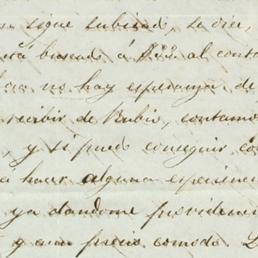 sigue subiendo, se dia,
buscado á $22 al conta
no hay esperanza de
recibir de Rubio, contamos
, y si puedo conseguir co
hacer alguna esperienci
ya dandome providen
y a un precio comodo.